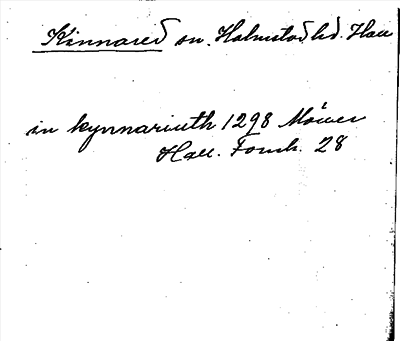 Kinnared sn. Halmstad hd. Hall
in kynnariuth 1298 Möwer
Hall. Forsk. 28